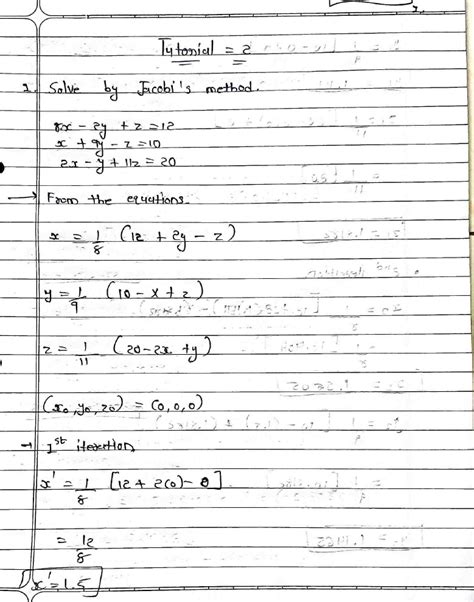 Tutorial = 2
2. Solve by Jacobi's method.
8x - 2y + z = 12
x + 9y - z = 10
2x - y + 11z = 20
→ From the equations.
x = 1/8 (12 + 2y - z)
y = 1/9 (10 - x + z)
z = 1/11 (20 - 2x + y)
(x0, y0, z0) = (0, 0, 0)
→ 1st iteration
x' = 1/8 [12 + 2(0) - 0]
= 12/8
x' = 1.5